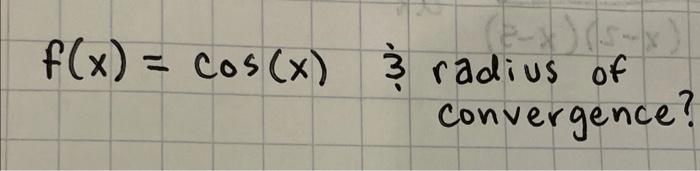 f(x) = cos(x) & radius of
convergence?